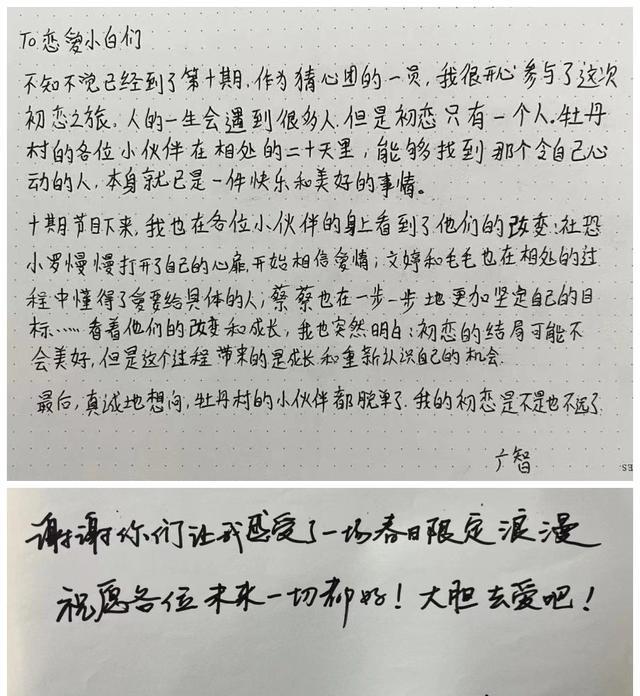 To 恋爱小白们
不知不觉已经到了第十期,作为猜心团的一员,我很开心参与了这次
初恋之旅。人的一生会遇到很多人,但是初恋只有一个人。牡丹
村的各位小伙伴在相处的二十天里,能够找到那个令自己心
动的人,本身就已是一件快乐和美好的事情。
十期节目下来,我也在各位小伙伴的身上看到了他们的改变:社恐
小罗慢慢打开了自己的心扉,开始相信爱情;文婷和毛毛也在相处的过
程中懂得了爱要给具体的人;蔡蔡也在一步一步地更加坚定自己的目
标……看着他们的改变和成长,我也突然明白:初恋的结局可能不
会美好,但是这个过程带来的是成长和重新认识自己的机会.
最后,真诚地想问,牡丹村的小伙伴都脱单了.我的初恋是不是也不远了.
广智
ES.
谢谢你们让我感受了一场春日限定浪漫
祝愿各位未来一切都好!大胆去爱吧!